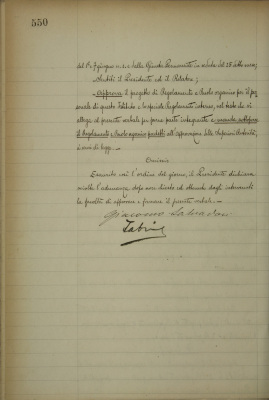 550
del 1° Giugno u.s. e dalla Giunta Permanente in seduta del 25 detto mese;
Uditi il Presidente ed il Relatore;
Approva il progetto di Regolamento e Ruolo organico per il per
sonale di questo Istituto e lo speciale Regolamento interno, nel testo che si
allega al presente verbale per farne parte integrante e
il Regolamento e Ruolo organico predetti all'approvazione della Superiore Autorità,
a sensi di legge.
Omissis
Esaurito così l'ordine del giorno, il Presidente dichiara
sciolta l'adunanza dopo aver
la facoltà di approvare e firmare il presente verbale.
Giacomo